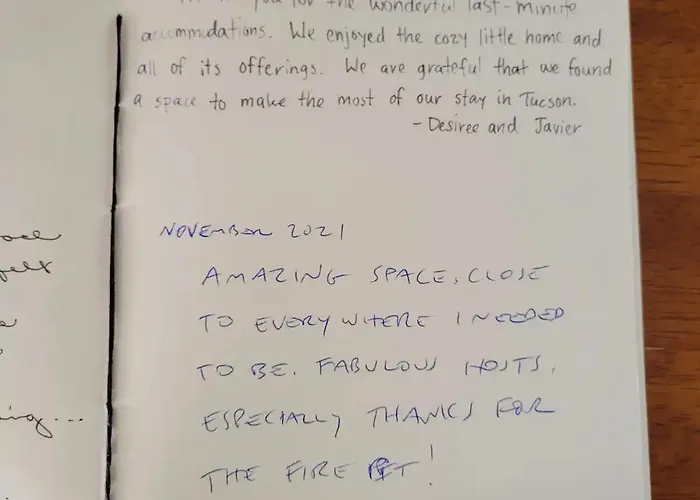 you for the wonderful last-minute
accommodations. We enjoyed the cozy little home and
all of its offerings. We are grateful that we found
a space to make the most of our stay in Tucson.
- Desiree and Javier
NOVEMBER 2021
AMAZING SPACE, CLOSE
TO EVERYWHERE I NEEDED
TO BE. FABULOUS HOSTS,
ESPECIALLY THANKS FOR
THE FIRE PIT!